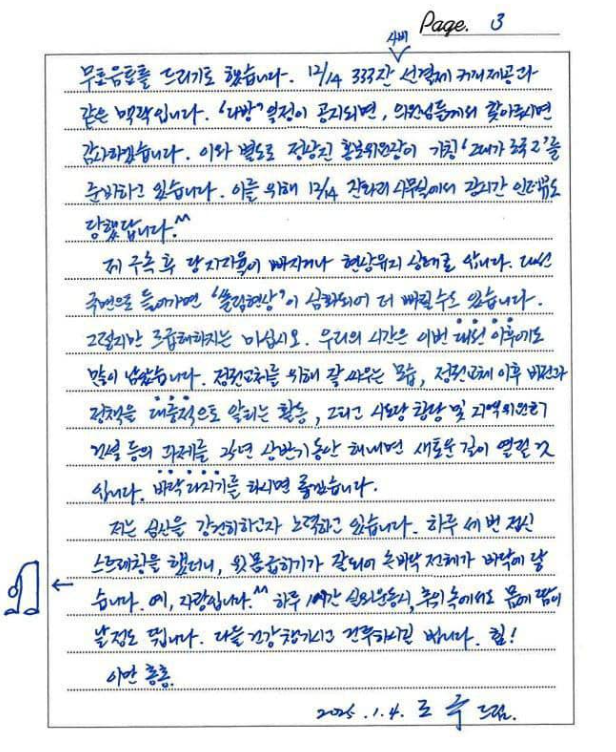 Page. 3
사비
무효음료를 드리기로 했습니다. 12/14 333잔 선결제 커피제공과
같은 맥락입니다. '다방' 일정이 공지되면, 의원님들께서 찾아주시면
감사하겠습니다. 이와 별도로 정상진 홍보위원장이 가칭 '그대가 조국 2'를
준비하고 있습니다. 이를 위해 12/14 사무실에서 장시간 인터뷰도
당했답니다.^^
제 구속 후 당 지지율이 빠지거나 현상유지 상태로 압니다. 대선
국면으로 들어가면 '쏠림현상'이 심화되어 더 빠질 수도 있습니다.
그렇지만 조급해하지는 마십시오. 우리의 시간은 이번 대선 이후에도
많이 남았습니다. 정권교체를 위해 잘 싸우는 모습, 정권교체 이후 비전과
정책을 대중적으로 알리는 활동, 그리고 시도당 창당 및 지역위원회
건설 등의 과제를 25년 상반기 동안 해내면 새로운 길이 열릴 것
입니다. 바닥 다지기를 하시면 좋겠습니다.
저는 심신을 강건히 하고자 노력하고 있습니다. 하루 세 번 전신
스트레칭을 했더니, 윗몸굽히기가 잘되어 손바닥 전체가 바닥에 닿
습니다. 예, 자랑입니다.^^ 하루 1시간 실외운동시, 추위 속에서도 몸에 땀이
날 정도 뜁니다. 다들 건강 챙기시고 건투하시길 빕니다. 힘!
이만 총총.
2025. 1. 4. 조 국 드림.